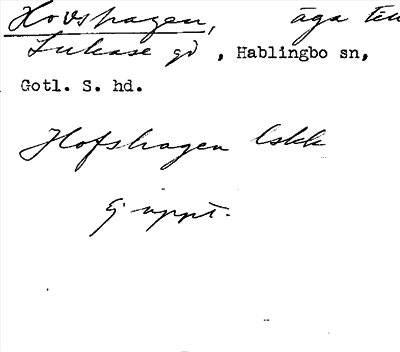 Hovshagen, äga till
Lukase gd , Hablingbo sn,
Gotl. S. hd.
Hofshagen lskk
Ej uppt.